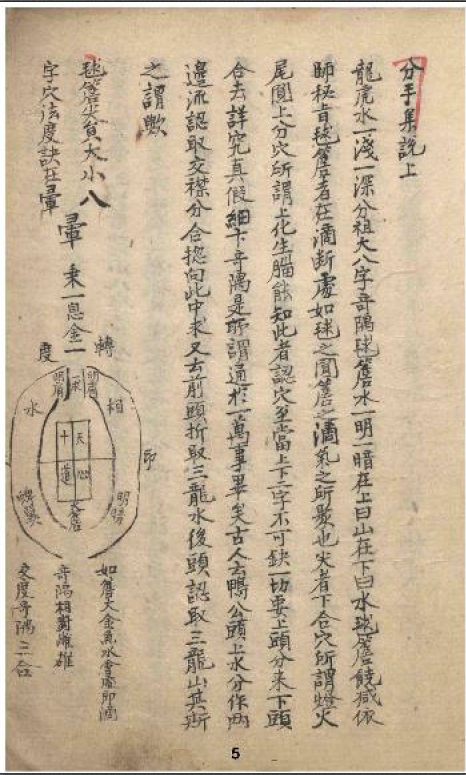 分手集說上
龍虎水一淺一深分祖大八字奇隅毬簷水一明一暗在上曰山在下曰水毬簷饒减依
師秘旨毬簷者在滴斷處如毬之圓簷之滴氣之所聚也尖者下合穴所謂燈火
尾圓上分穴所謂上化生腦能知此者認穴至當上下二字不可缺一切要上頭分來下頭
合去詳究真假細卞奇隅是所謂通於一萬事畢矣古人云鴨公頭上水分作兩
邊流認取交襟分合揔向此中求又云前頭折取三龍水後頭認取三龍山其斯
之謂歟
毬簷尖貟大小八
字穴法度訣在暈
暈 乗一息金一
轉
度
相
水
印
明肩
一毬
明肩
天
十
心
道
大簷
明暗
如簷大金魚水會際即滴
奇隅相對雌雄
交度奇隅三合
5